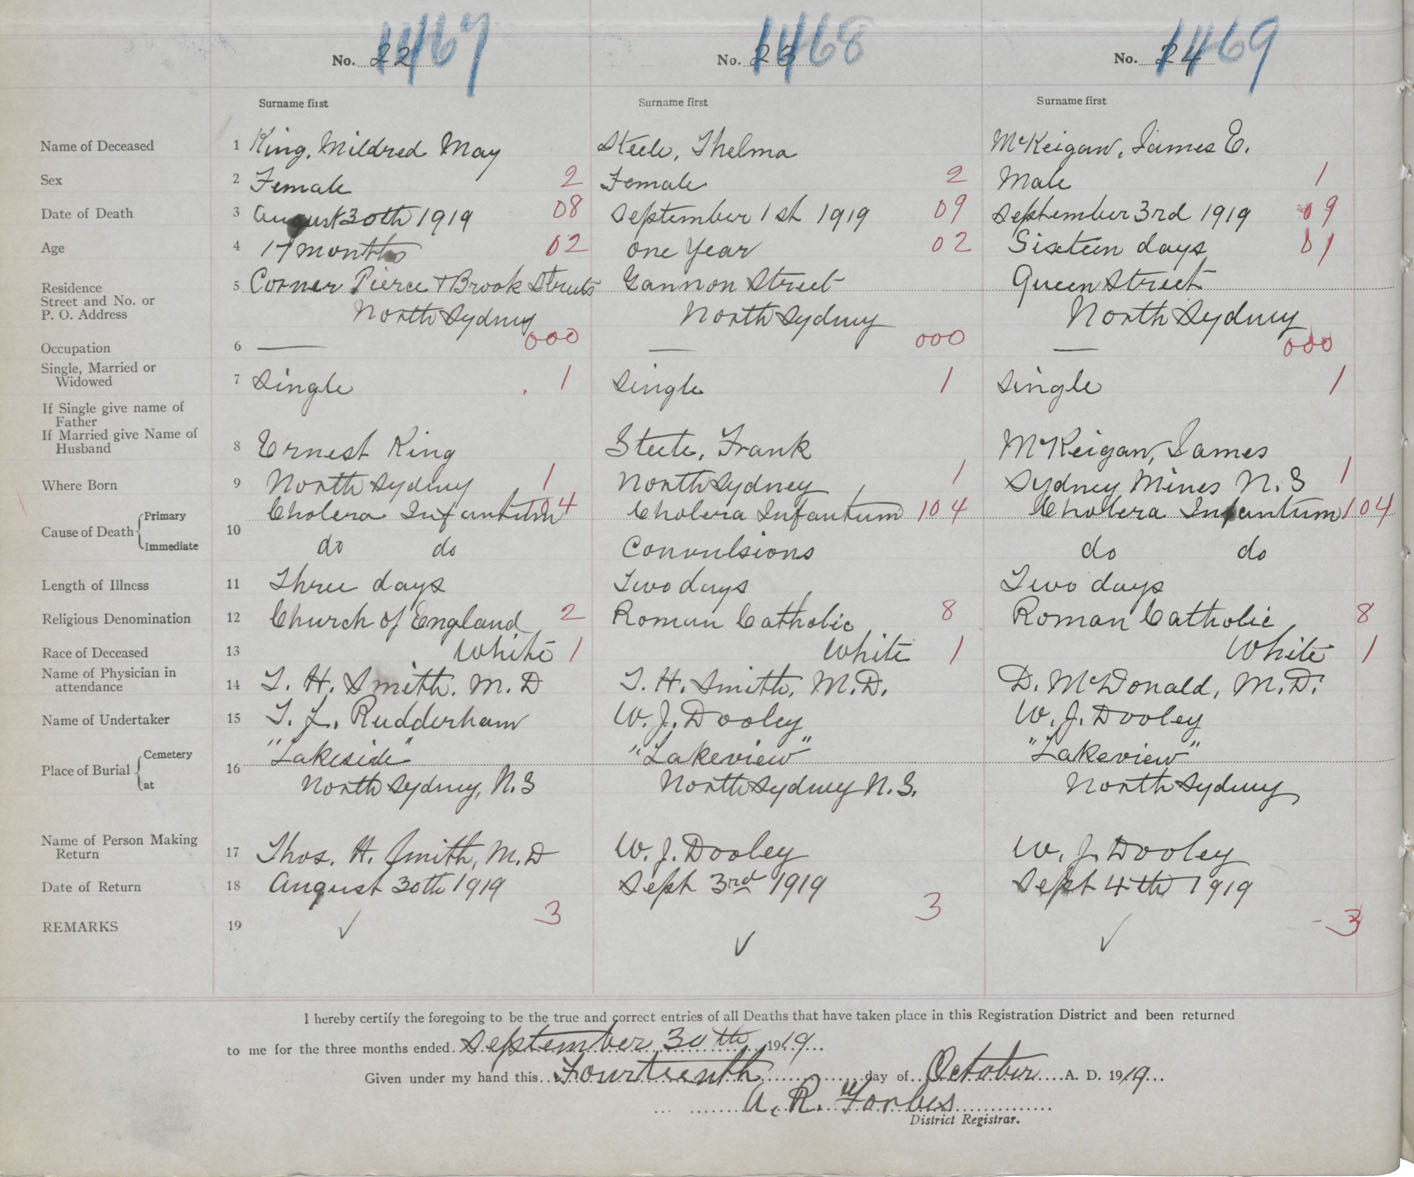 1467 1468 1469
No. 22 No. 23 No. 24
Surname first Surname first Surname first
Name of Deceased 1 King, Mildred May Steele, Thelma McKeigan, James E.
Sex 2 Female 2 Female 2 Male 1
Date of Death 3 August 30th 1919 08 September 1st 1919 09 September 3rd 1919 09
Age 4 17 months 02 one Year 02 Sixteen days 01
Residence
Street and No. or 5 Corner Pierce + Brook Streets Gannon Street Queen Street
P. O. Address North Sydney North Sydney North Sydney
Occupation 6 — 000 — 000 — 000
Single, Married or
Widowed 7 Single 1 Single 1 Single 1
If Single give name of
Father
If Married give Name of
Husband 8 Ernest King Steele, Frank McKeigan, James
Where Born 9 North Sydney 1 North Sydney 1 Sydney Mines N.S 1
Cause of Death Primary Cholera Infantum 104 Cholera Infantum 104 Cholera Infantum 104
Immediate 10 do do Convulsions do do
Length of Illness 11 Three days Two days Two days
Religious Denomination 12 Church of England 2 Roman Catholic 8 Roman Catholic 8
Race of Deceased 13 White 1 White 1 White 1
Name of Physician in
attendance 14 T. H. Smith. M.D T. H. Smith, M.D. D. McDonald, M.D.
Name of Undertaker 15 T. L. Rudderham W. J. Dooley W. J. Dooley
Place of Burial Cemetery 16 "Lakeside" "Lakeview" "Lakeview"
at North Sydney, N.S North Sydney N.S. North Sydney
Name of Person Making
Return 17 Thos. H. Smith, M.D W. J. Dooley W. J. Dooley
Date of Return 18 August 30th 1919 Sept 3rd 1919 Sept 4th 1919
REMARKS 19 ✓ 3 ✓ 3 ✓ 3
I hereby certify the foregoing to be the true and correct entries of all Deaths that have taken place in this Registration District and been returned
to me for the three months ended September 30th 1919
Given under my hand this Fourteenth day of October A. D. 1919
A. R. Forbes
District Registrar.